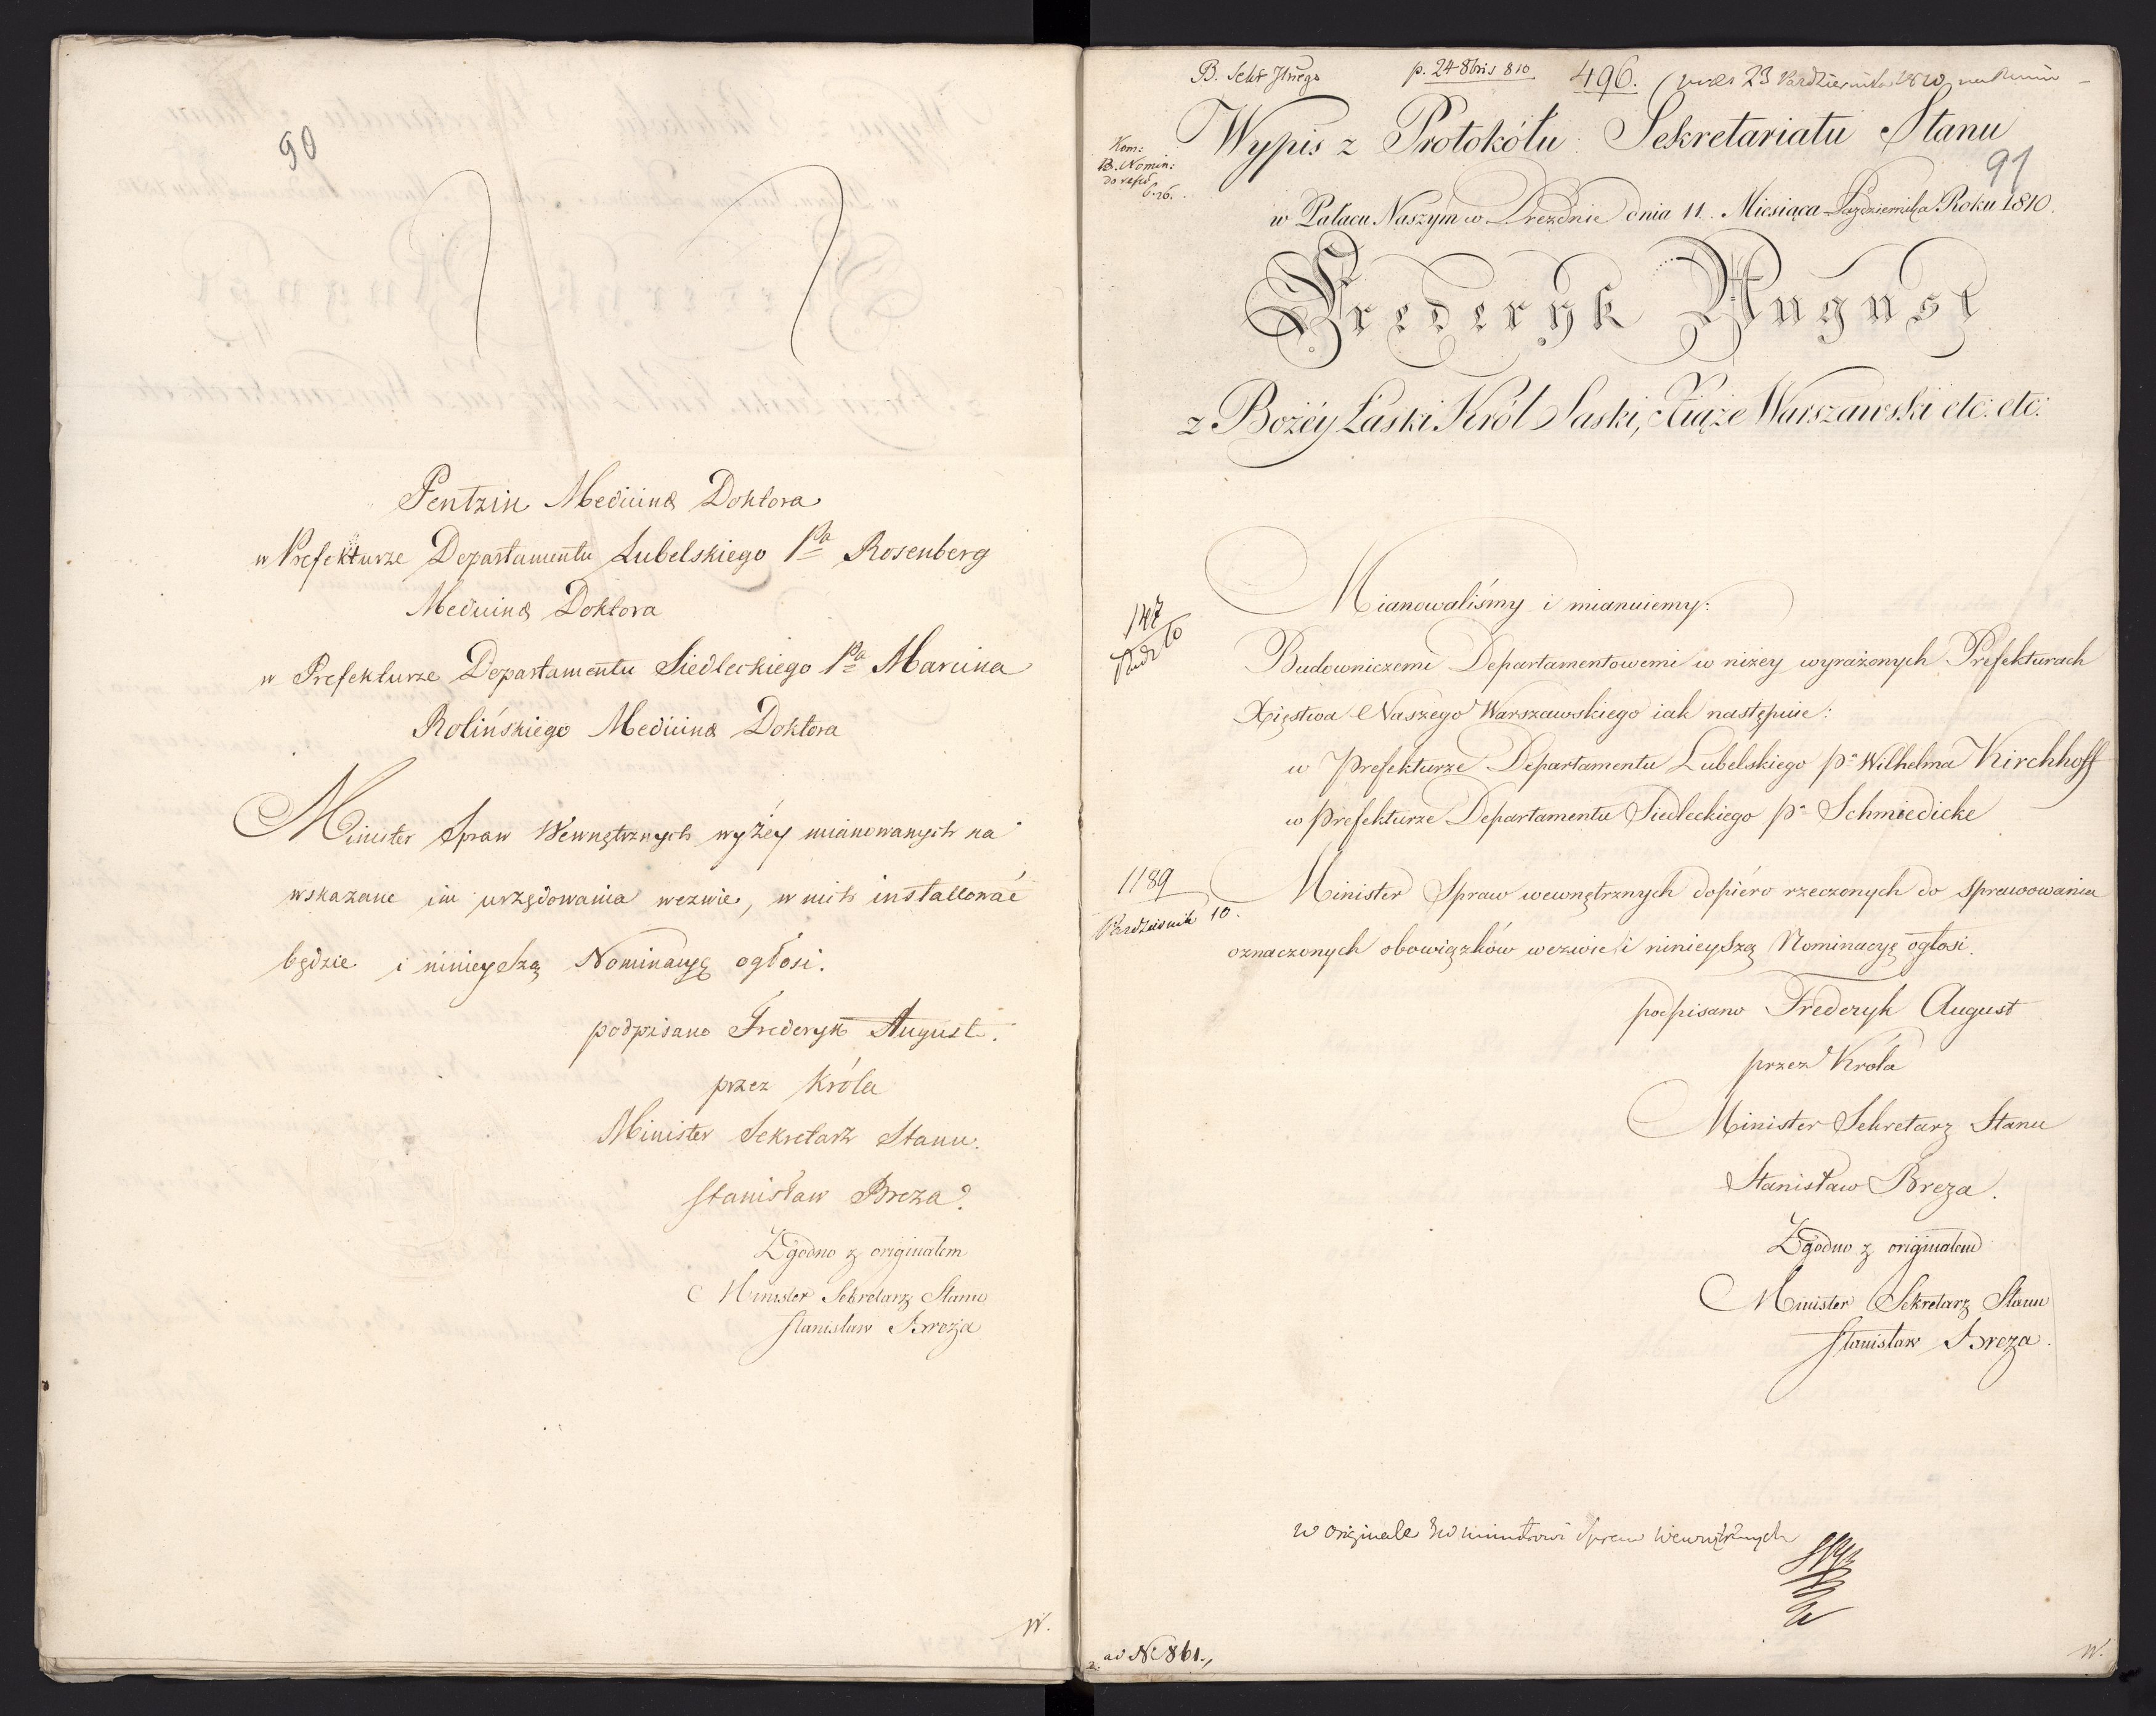 90
Pentzin Medicinæ Doktora
w Prefekturze Departamentu Lubelskiego Pa Rosenberg
Medicinæ Doktora
w Prefekturze Departamentu Siedleckiego Pa Marcina
Rolińskiego Medicinæ Doktora
Minister Spraw Wewnętrznych wyżéy mianowanych na
wskazane im urzędowania wezwie, w nich installować
będzie i ninieyszą Nominacyę ogłosi.
podpisano Frederyk August.
przez Króla
Minister Sekretarz Stanu.
Stanisław Breza.
Zgodno z originałem
Minister Sekretarz Stanu
Stanisław Breza
W.
p. 24 8bris 810
496.
23 Października 1810
Wypis z Protokółu Sekretariatu Stanu
91
Kom:
B. Nomin:
w Pałacu Naszym w Dreźdnie dnia 11. Miesiąca Października Roku 1810.
Frederyk August
z Bożéy Łaski Król Saski, Xiąże Warszawski etc: etc:
Mianowaliśmy i mianuiemy:
147
Budowniczemi Departamentowemi w niżey wyrażonych Prefekturach
Xięstwa Naszego Warszawskiego iak następuie:
w Prefekturze Departamentu Lubelskiego pa Wilhelma Kirchhoff
w Prefekturze Departamentu Siedleckiego pa Schmiedicke
1189
Październik 10.
Minister Spraw wewnętrznych dopiéro rzeczonych do sprawowania
oznaczonych obowiązków wezwie i ninieyszą Nominacyę ogłosi.
podpisano Frederyk August
przez Króla
Minister Sekretarz Stanu
Stanisław Breza.
Zgodno z originałem
Minister Sekretarz Stanu
Stanisław Breza.
w originale Ministrowi Spraw Wewnętrznych
ad No 861.
W.